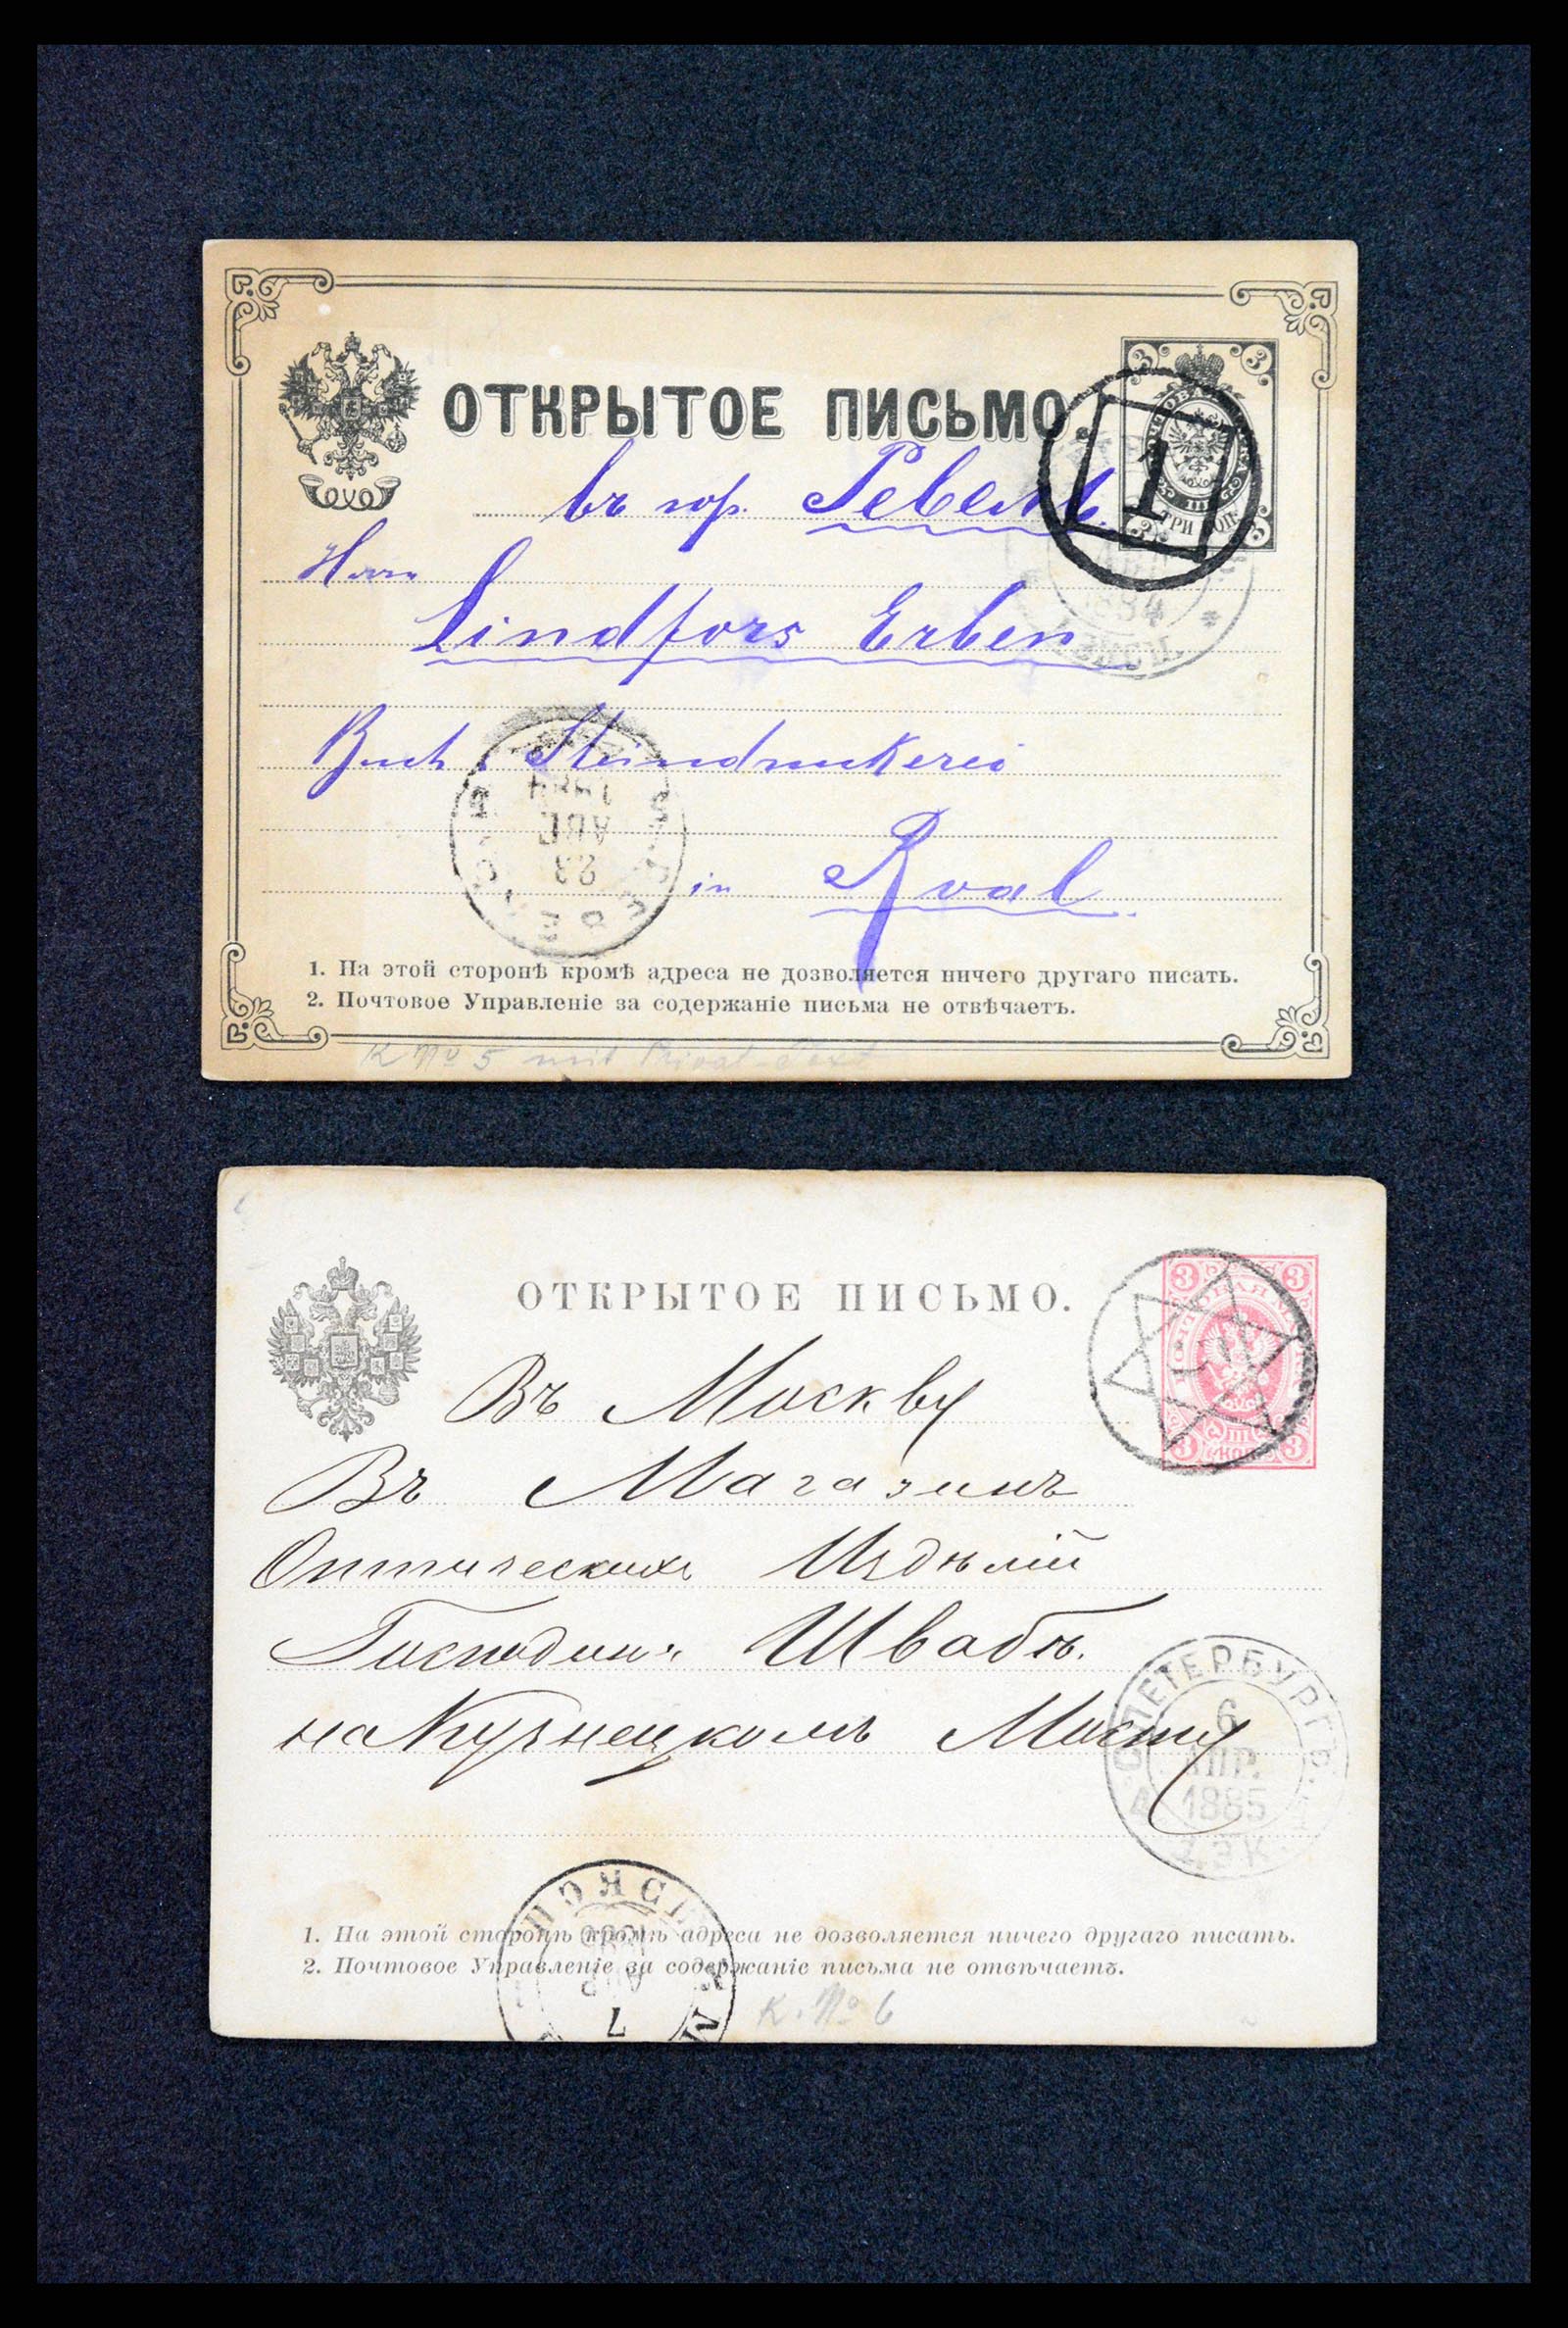 ОТКРЫТОЕ ПИСЬМО.
3 3
ТРИ КОП.
1
въ гор. Ревель.
Herrn
Lindfors Erben
1884
Buch Steindruckerei
1884
АВГ
23
in Rval.
1. На этой сторонѣ кромѣ адреса не дозволяется ничего другаго писать.
2. Почтовое Управленіе за содержаніе письма не отвѣчаетъ.
K No 5 mit Privat-Text
ОТКРЫТОЕ ПИСЬМО.
3 3
5
3 КОП. 3
Въ Москву
Въ Магазинъ
Оптическихъ Издѣлій
Господина Швабѣ.
на Кузнецкомъ Мосту
С.ПЕТЕРБУРГЪ.
6
АПР.
1885
1. На этой сторонѣ кромѣ адреса не дозволяется ничего другаго писать.
2. Почтовое Управленіе за содержаніе письма не отвѣчаетъ.
АПР
7
K. No 6